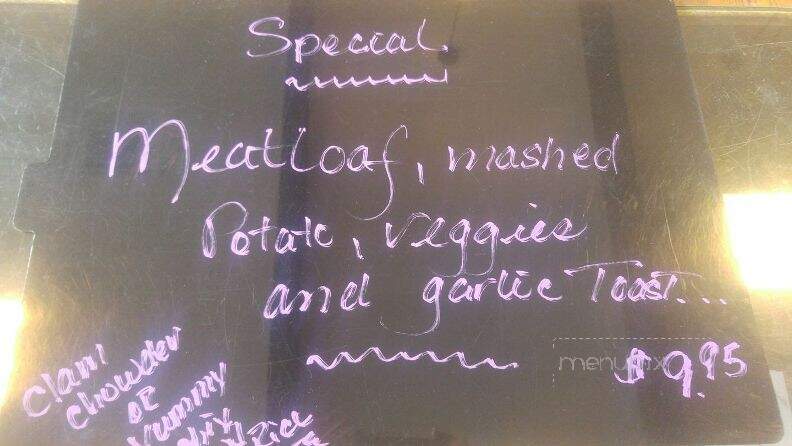 Special
Meatloaf, mashed
Potato, veggies
and garlic Toast...
menupix
$9.95
Clam
Chowder
or
Yummy